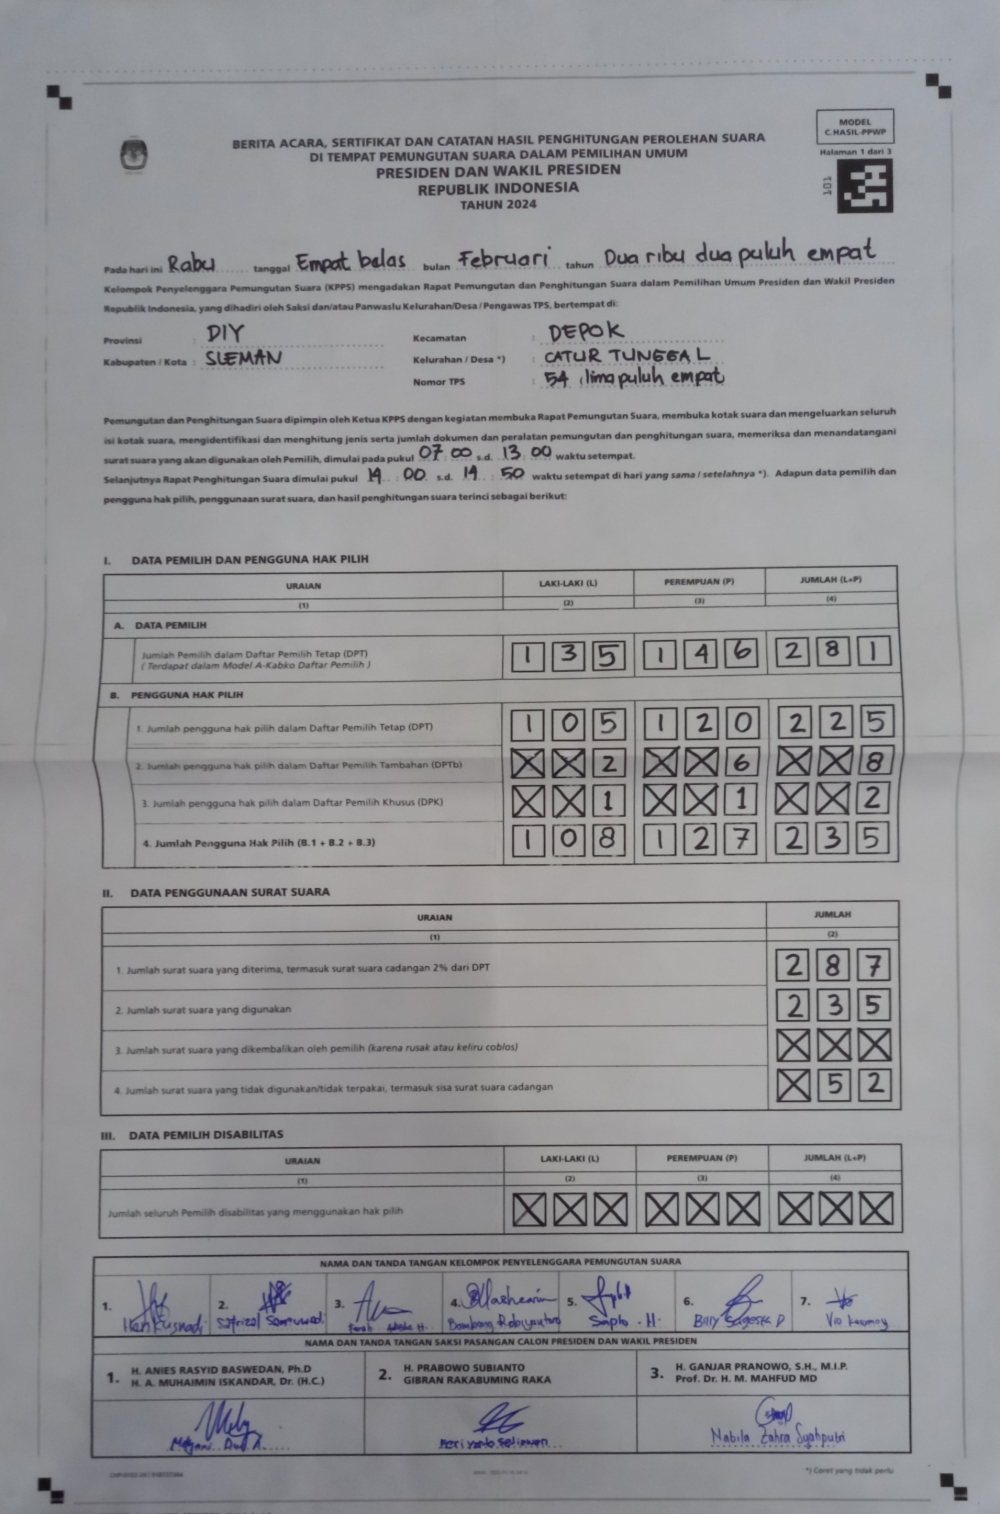 MODEL
C.HASIL-PPWP
Halaman 1 dari 3
101
BERITA ACARA, SERTIFIKAT DAN CATATAN HASIL PENGHITUNGAN PEROLEHAN SUARA
DI TEMPAT PEMUNGUTAN SUARA DALAM PEMILIHAN UMUM
PRESIDEN DAN WAKIL PRESIDEN
REPUBLIK INDONESIA
TAHUN 2024
Pada hari ini Rabu tanggal Empat belas bulan Februari tahun Dua ribu dua puluh empat
Kelompok Penyelenggara Pemungutan Suara (KPPS) mengadakan Rapat Pemungutan dan Penghitungan Suara dalam Pemilihan Umum Presiden dan Wakil Presiden
Republik Indonesia, yang dihadiri oleh Saksi dan/atau Panwaslu Kelurahan/Desa / Pengawas TPS, bertempat di:
Provinsi : DIY Kecamatan : DEPOK
Kabupaten / Kota : SLEMAN Kelurahan / Desa *) : CATUR TUNGGAL
Nomor TPS : 54, lima puluh empat
Pemungutan dan Penghitungan Suara dipimpin oleh Ketua KPPS dengan kegiatan membuka Rapat Pemungutan Suara, membuka kotak suara dan mengeluarkan seluruh
isi kotak suara, mengidentifikasi dan menghitung jenis serta jumlah dokumen dan peralatan pemungutan dan penghitungan suara, memeriksa dan menandatangani
surat suara yang akan digunakan oleh Pemilih, dimulai pada pukul 07 00 s.d. 13 00 waktu setempat.
Selanjutnya Rapat Penghitungan Suara dimulai pukul 14 : 00 s.d. 19 : 50 waktu setempat di hari yang sama / setelahnya *). Adapun data pemilih dan
pengguna hak pilih, penggunaan surat suara, dan hasil penghitungan suara terinci sebagai berikut:
I. DATA PEMILIH DAN PENGGUNA HAK PILIH
URAIAN LAKI-LAKI (L) PEREMPUAN (P) JUMLAH (L+P)
(1) (2) (3) (4)
A. DATA PEMILIH
Jumlah Pemilih dalam Daftar Pemilih Tetap (DPT) 1 3 5 1 4 6 2 8 1
( Terdapat dalam Model A-Kabko Daftar Pemilih )
B. PENGGUNA HAK PILIH
1. Jumlah pengguna hak pilih dalam Daftar Pemilih Tetap (DPT) 1 0 5 1 2 0 2 2 5
2. Jumlah pengguna hak pilih dalam Daftar Pemilih Tambahan (DPTb) X X 2 X X 6 X X 8
3. Jumlah pengguna hak pilih dalam Daftar Pemilih Khusus (DPK) X X 1 X X 1 X X 2
4. Jumlah Pengguna Hak Pilih (B.1 + B.2 + B.3) 1 0 8 1 2 7 2 3 5
II. DATA PENGGUNAAN SURAT SUARA
URAIAN JUMLAH
(1) (2)
1. Jumlah surat suara yang diterima, termasuk surat suara cadangan 2% dari DPT 2 8 7
2. Jumlah surat suara yang digunakan 2 3 5
3. Jumlah surat suara yang dikembalikan oleh pemilih (karena rusak atau keliru coblos) X X X
4. Jumlah surat suara yang tidak digunakan/tidak terpakai, termasuk sisa surat suara cadangan X 5 2
III. DATA PEMILIH DISABILITAS
URAIAN LAKI-LAKI (L) PEREMPUAN (P) JUMLAH (L+P)
(1) (2) (3) (4)
Jumlah seluruh Pemilih disabilitas yang menggunakan hak pilih X X X X X X X X X
NAMA DAN TANDA TANGAN KELOMPOK PENYELENGGARA PEMUNGUTAN SUARA
1. 2. 3. 4. 5. 6. 7.
Bambang Sapto . H. Billy
NAMA DAN TANDA TANGAN SAKSI PASANGAN CALON PRESIDEN DAN WAKIL PRESIDEN
1. H. ANIES RASYID BASWEDAN, Ph.D
H. A. MUHAIMIN ISKANDAR, Dr. (H.C.)
2. H. PRABOWO SUBIANTO
GIBRAN RAKABUMING RAKA
3. H. GANJAR PRANOWO, S.H., M.I.P.
Prof. Dr. H. M. MAHFUD MD
Nabila Zahra Syahputri
*) Coret yang tidak perlu